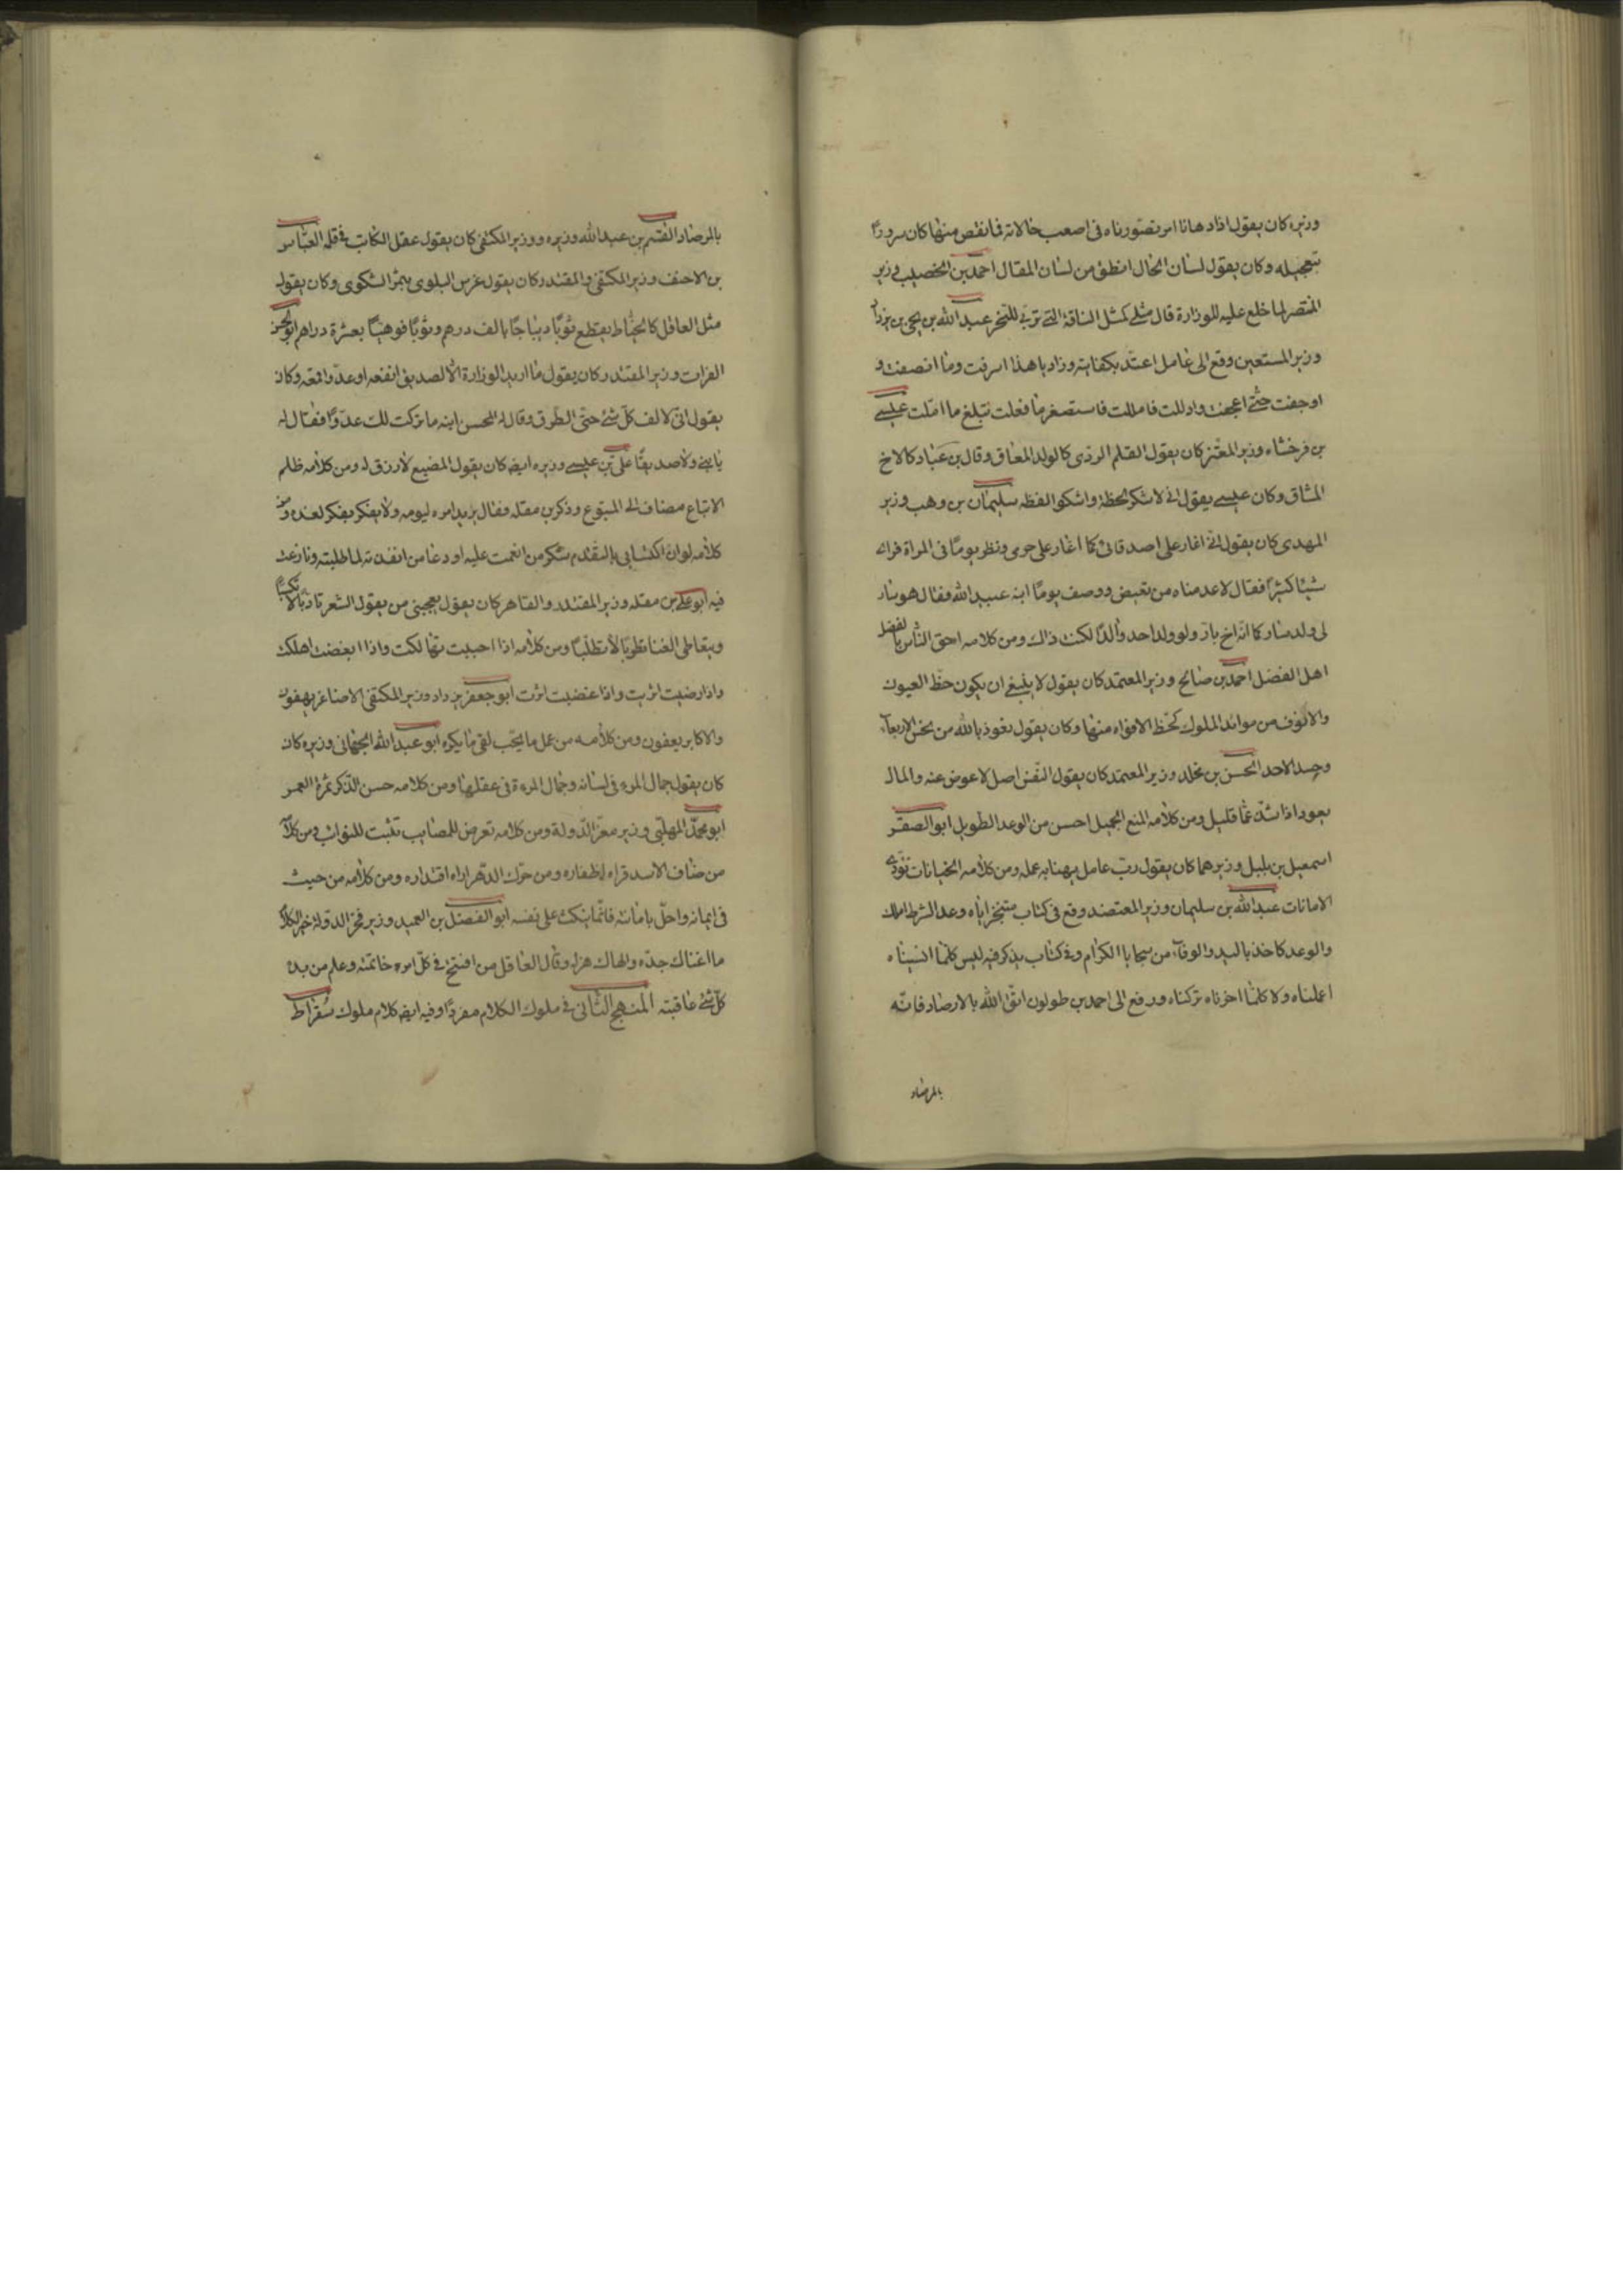 وزيره كان يقول اذا دهانا امر تصورناه فى اصعب حالاته فما نقص منها كان سرورا
نتعجله وكان يقول لسان الحال انطق من لسان المقال احمد بن الخصيب وزير
المنتصر لما خلع عليه للوزارة قال مثلى كمثل الناقة التى تزين للنحر عبد الله بن يحيى بن يزداد
وزير المستعين وقع الى عامل اعتد بكفايته وزاد يا هذا اسرفت وما انصفت و
اوجفت حتى اعجفت وادللت فامللت فاستصغر ما فعلت تبلغ ما املت عيسى
بن فرخشاه وزير المعتز كان يقول القلم الردى كالولد العاق وقال بن عباد كالاخ
المشاق وكان عيسى يقول انى لاشكر لحظه واشكو الفظه سليمان بن وهب وزير
المهدى كان يقول انى اغار على اصدقائى كما اغار على حرمى ونظر يوما فى المراة فراى
شيبا كثيرا فقال لا عدمناه من بغيض ووصف يوما ابنه عبيد الله فقال هو بار
لى ولد سار كما انه اخ بار ولو ولد احد والدا لكنت ذاك ومن كلامه احق الناس بالفضل
اهل الفضل احمد بن صالح وزير المعتمد كان يقول لا ينبغى ان يكون حظ العيون
والانوف من موائد الملوك كحظ الافواه منها وكان يقول نعوذ بالله من نحس الاربعاء
وحسد الاحد الحسن بن مخلد وزير المعتمد كان يقول النفس اصل لا عوض عنه والمال
يعود اذا شئت عما قليل ومن كلامه المنع الجميل احسن من الوعد الطويل ابو الصقر
اسمعيل بن بلبل وزيرهما كان يقول رب عامل يهنا به عمله ومن كلامه الخيانات تؤدى
الامانات عبد الله بن سليمان وزير المعتضد وقع فى كتاب متنجز اياه وعدا الشرط املك
والوعد كاخذ باليد والوفاء من سجايا الكرام وفى كتاب يذكر فيه ليس كلما انسيناه
اهملناه ولا كلما اخرناه تركناه ورفع الى احمد بن طولون اتق الله بالارصاد فانه
بالمرصاد
بالمرصاد القسم بن عبد الله وزيره ووزير المكتفى كان يقول عقل الكاتب فى قلمه العباس
بن الاحنف وزير المكتفى والمقتدر كان يقول غرس البلوى يثمر الشكوى وكان يقول
مثل العاقل كالخياط يقطع ثوبا ديباجا بالف درهم وثوبا فوهيا بعشرة دراهم ابو الحسن
الفرات وزير المقتدر كان يقول ما اريد الوزارة الا لصديق انفعه او عدو اقمعه وكان
يقول انى لالف كل شئ حتى الطرق وقال له المحسن ابنه ما تركت لك عدوا فقال له
يا بنى ولا صديقا على بن عيسى وزيره ايضا كان يقول المضيع لا رزق له ومن كلامه ظلم
الاتباع مضاف الى المتبوع وذكر بن مقله فقال يريد امره ليومه ولا يفكر يفكر لغده ومن
كلامه لو ان اكتسابى بالتقدم شكر من انعمت عليه او دعا من انقذته لما طلبته ونازعت
فيه ابو على بن مقله وزير المقتدر والقاهر كان يقول يعجبنى من يقول الشعر تادبا لا تكسبا
ويتعاطى الغنا تطربا لا تطلبا ومن كلامه اذا احببت تهالكت واذا ابغضت اهلكت
واذا رضيت اثريت واذا غضبت اثرت ابو جعفر يزداد وزير المكتفى الاصاغر يهفون
والاكابر يعفون ومن كلامه من عمل ما يحب لقى ما يكره ابو عبد الله الجيهانى وزيره كان
كان يقول جمال المرء فى لسانه وجمال المرءة فى عقلها ومن كلامه حسن الذكر ثمرة العمر
ابو محمد المهلبى وزير معز الدولة ومن كلامه تعرض للمصايب تثبت للنوائب ومن كلامه
من ضاف الاسد قراه اظفاره ومن حرك الدهر اراه اقتداره ومن كلامه من حيث
فى ايمانه واخل بامانته فانما ينكث على نفسه ابو الفضل بن العميد وزير فخر الدولة خير الكلام
ما اغناك جده والهاك هزله وقال العاقل من افتتح فى كل امره خاتمته وعلم من بدء
كل شئ عاقبته المنهج الثانى فى ملوك الكلام مفردا وفيه ايضا كلام ملوك سقراط